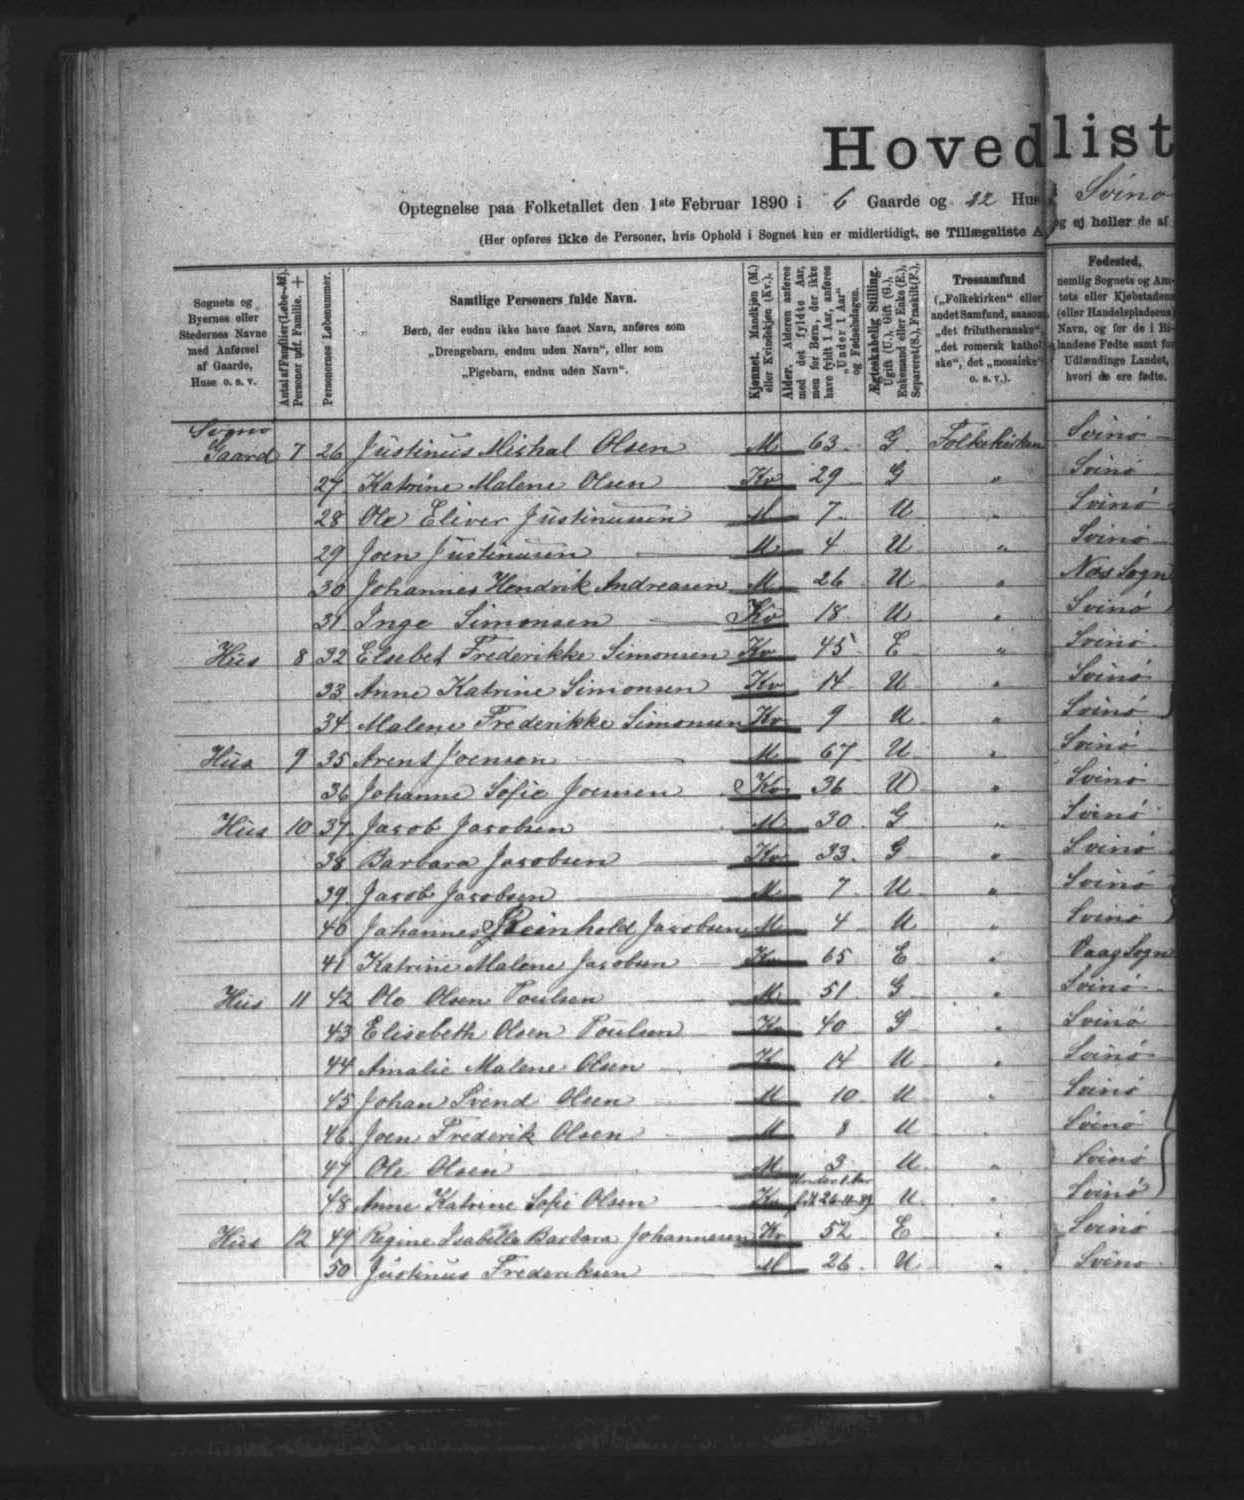 Hovedlist
Optegnelse paa Folketallet den 1ste Februar 1890 i 6 Gaarde og 12 Hus i Svinø
(Her opføres ikke de Personer, hvis Ophold i Sognet kun er midlertidigt, se Tillægsliste A og ej heller de af
Sognets og Byernes eller Stedernes Navne med Anførsel af Gaarde, Huse o. s. v.
Antal af Familier (Løbe-Nr.). Personer udf. Familie. +
Personernes Løbenummer.
Samtlige Personers fulde Navn.
Børn, der endnu ikke have faaet Navn, anføres som
„Drengebarn, endnu uden Navn“, eller som
„Pigebarn, endnu uden Navn“.
Kjønnet. Mandkjøn (M.) eller Kvindekjøn (Kv.).
Alder. Alderen anføres med det fyldte Aar, men for Børn, der ikke have fyldt 1 Aar, anføres „Under 1 Aar“ og Fødselsdagen.
Ægteskabelig Stilling. Ugift (U.), Gift (G.), Enkemand eller Enke (E.), Separeret (S.), Fraskilt (F.).
Trossamfund („Folkekirken“ eller andet Samfund, saasom „det frilutheranske“, „det romersk kathol ske“, det „mosaiske“ o. s. v.).
Fødested, nemlig Sognets og Am- tets eller Kjøbstadens (eller Handelspladsens) Navn, og for de i Bi- landene Fødte samt for Udlændinge Landet, hvori de ere fødte.
Gaard 7 26 Justinus Mishal Olsen M 63 G Folkekirken Svinø
27 Katrine Malene Olsen Kv 29 G " Svinø
28 Ole Eliver Justinussen M 7 U " Svinø
29 Joen Justinusen M 4 U " Svinø
30 Johannes Hendrik Andreasen M 26 U " Næs Sogn
31 Inge Simonsen Kv 18 U " Svinø
Hus 8 32 Elsebet Frederikke Simonsen Kv 45 E " Svinø
33 Anne Katrine Simonsen Kv 14 U " Svinø
34 Malene Frederikke Simonsen Kv 9 U " Svinø
Hus 9 35 Arent Joensen M 67 U " Svinø
36 Johanne Sofie Joensen Kv 36 U " Svinø
Hus 10 37 Jacob Jacobsen M 30 G " Svinø
38 Barbara Jacobsen Kv 33 G " Svinø
39 Jacob Jacobsen M 7 U " Svinø
40 Johannes Reinhold Jacobsen M 4 U " Svinø
41 Katrine Malene Jacobsen Kv 65 E " Vaag Sogn
Hus 11 42 Ole Olsen Poulsen M 51 G " Svinø
43 Elisebeth Olsen Poulsen Kv 40 G " Svinø
44 Amalie Malene Olsen K 14 U " Svinø
45 Johan Svend Olsen M 10 U " Svinø
46 Joen Frederik Olsen M 8 U " Svinø
47 Ole Olsen M 3 U " Svinø
48 Anne Katrine Sofie Olsen Kv Under 1 Aar U " Svinø
Hus 12 49 Regine Isabella Barbara Johannesen Kv 52 E " Svinø
50 Justinus Frederiksen M 26 U " Svinø